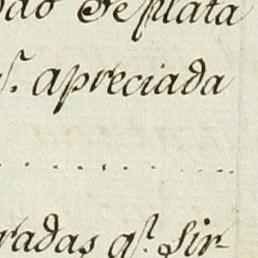 de plata
qs. apreciada
radas qe. sir-